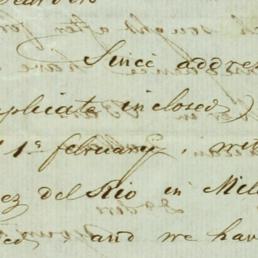 Since addres
uplicate inclosed)
1st february, wit
ez del Rio in Mel
ed and we hav